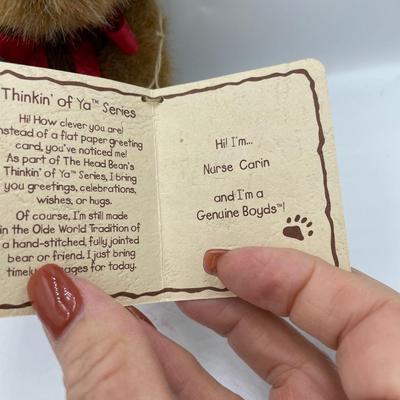 Thinkin' of Ya™ Series
Hi! How clever you are!
Instead of a flat paper greeting
card, you've noticed me!
As part of The Head Bean's
Thinkin' of Ya™ Series, I bring
you greetings, celebrations,
wishes, or hugs.
Of course, I'm still made
in the Olde World Tradition of
a hand-stitched, fully jointed
bear or friend. I just bring
timely for today.
Hi! I'm...
Nurse Carin
and I'm a
Genuine Boyds™!